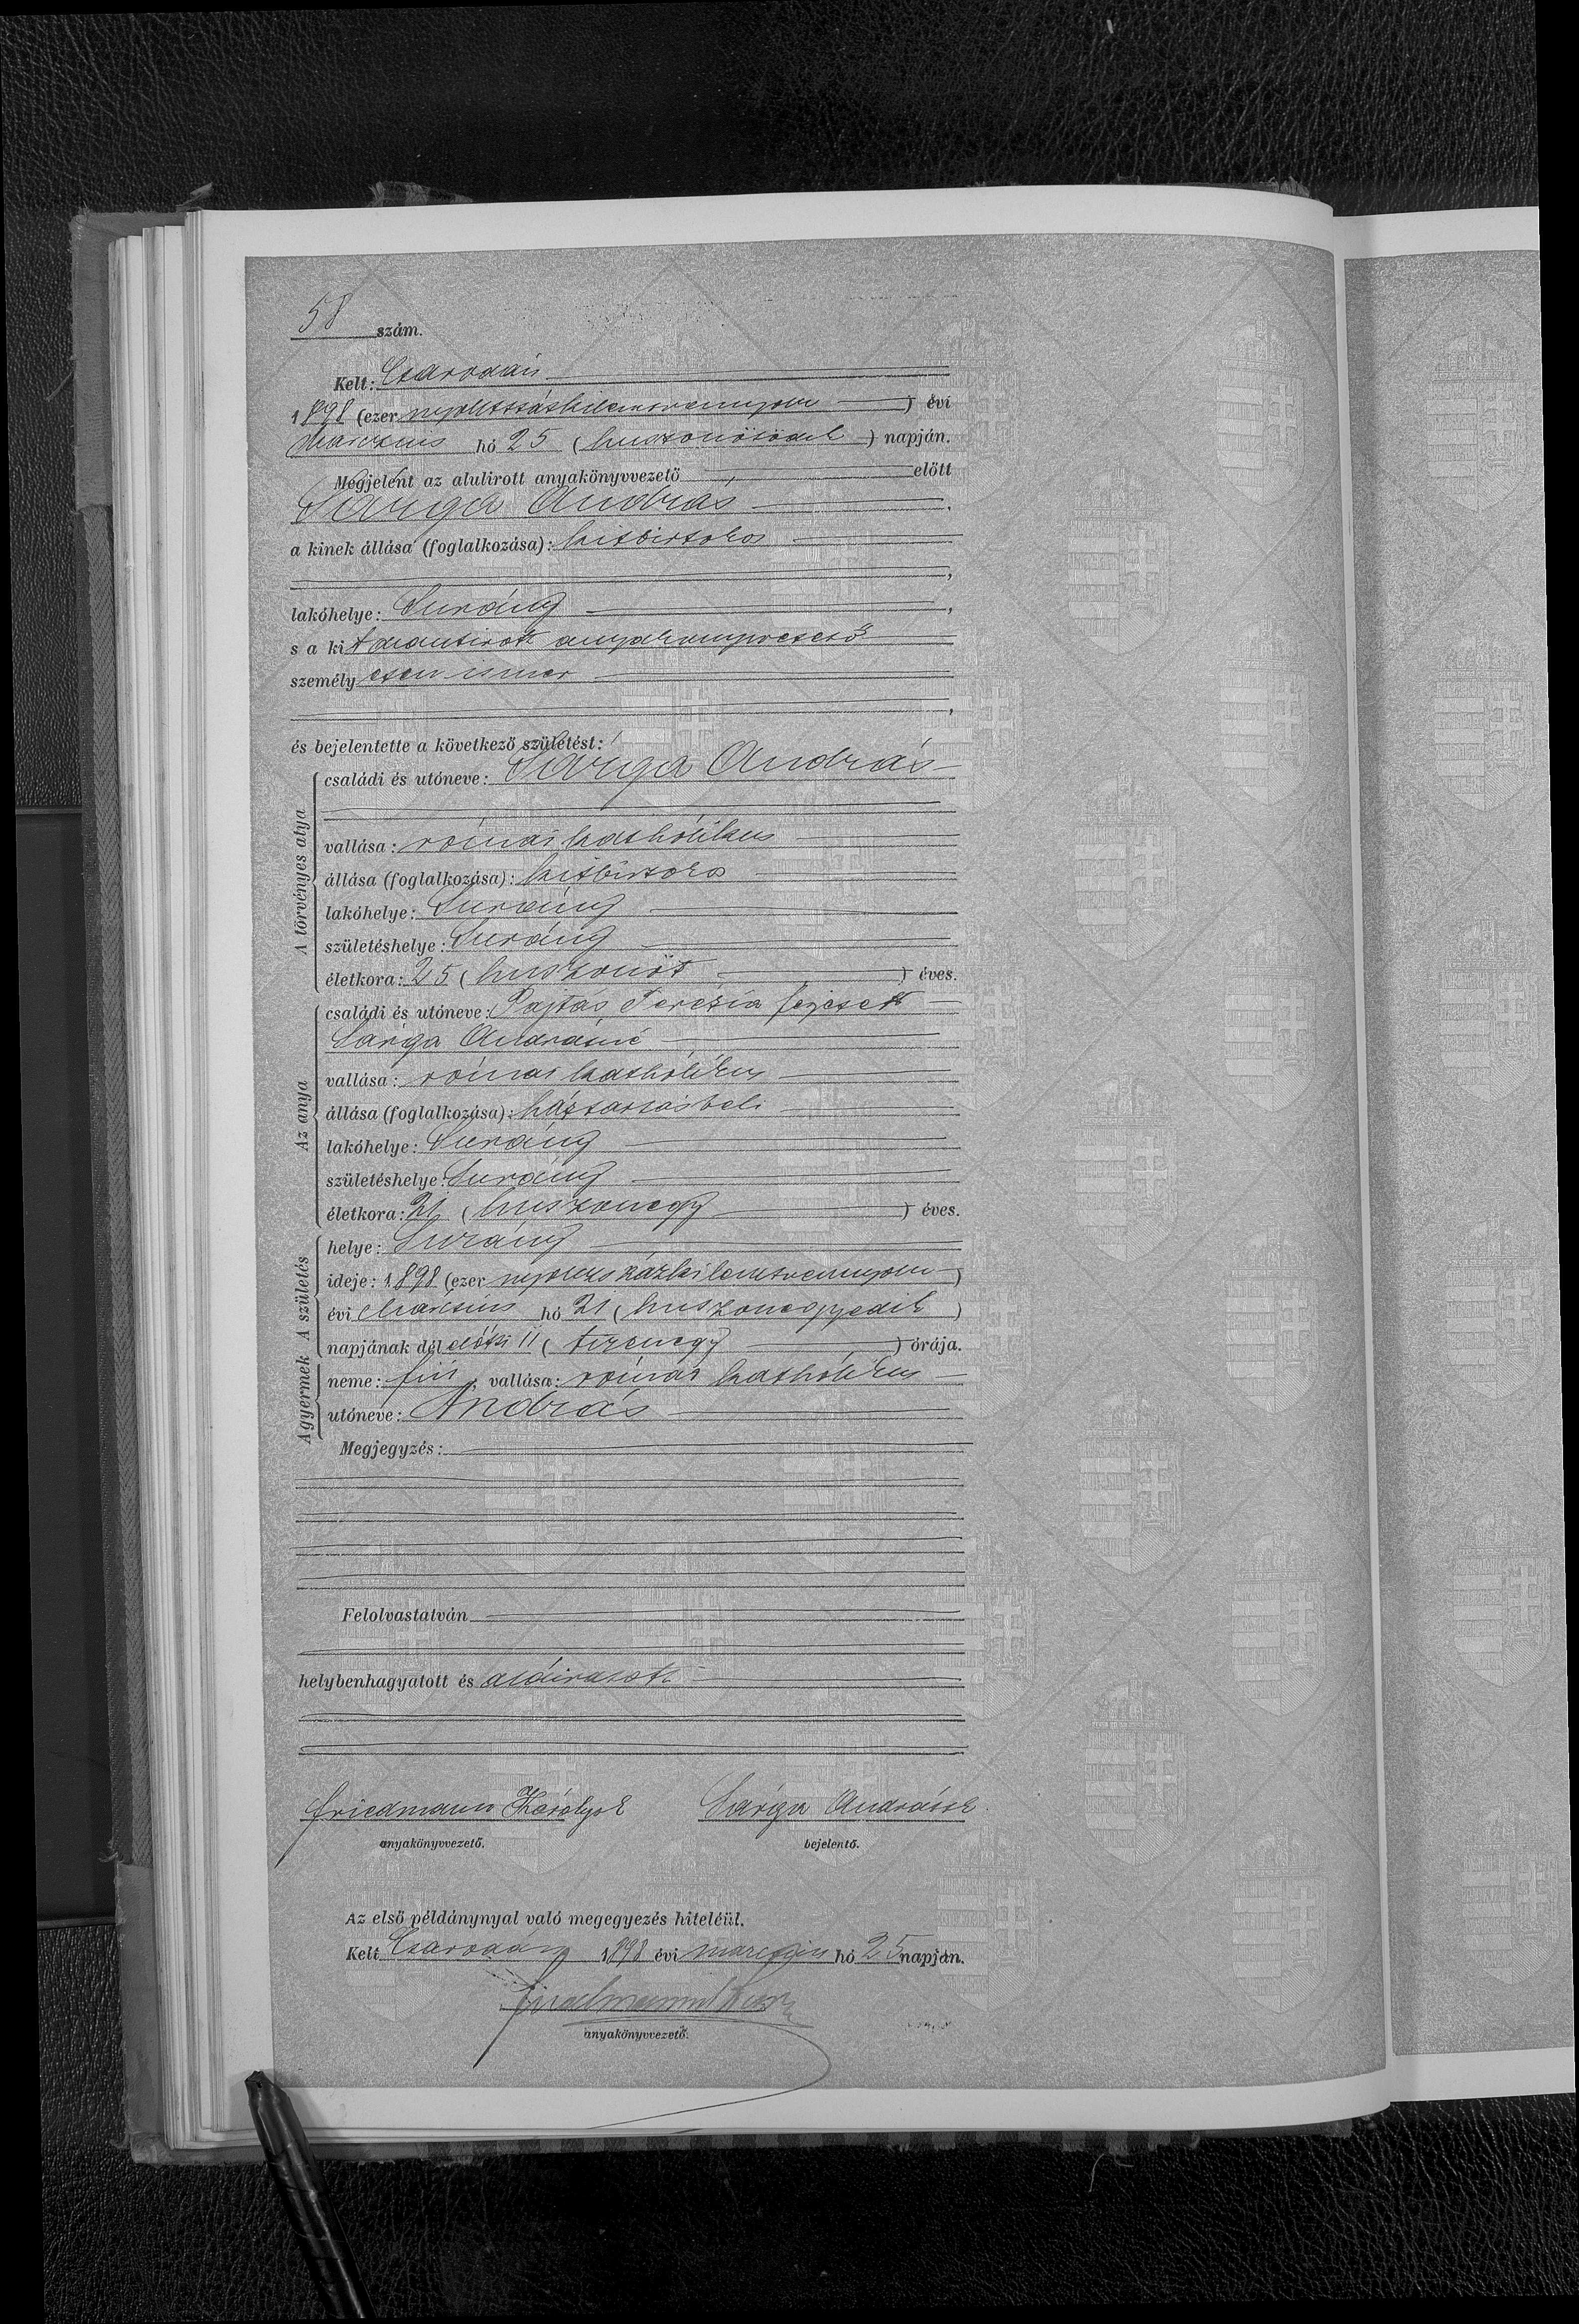 58 szám.
Kelt: Csarodán
1898 (ezer nyolcszázkilencvennyolc) évi
március hó 25 (huszonötödik) napján.
Megjelent az alulirott anyakönyvvezető előtt
Sárga András
a kinek állása (foglalkozása): kisbirtokos
lakóhelye: Surány
s a kit alantirott anyakönyvvezető
személyesen ismer
és bejelentette a következő születést:
A törvényes atya
családi és utóneve: Sárga András
vallása: római katholikus
állása (foglalkozása): kisbirtokos
lakóhelye: Surány
születéshelye: Surány
életkora: 25 (huszonöt) éves.
Az anya
családi és utóneve: Pajtás Terézia férjezett
Sárga Andrásné
vallása: római katholikus
állása (foglalkozása): háztartásbeli
lakóhelye: Surány
születéshelye: Surány
életkora: 21 (huszonegy) éves.
A születés
helye: Surány
ideje: 1898 (ezer nyolcszázkilencvennyolc)
évi március hó 21 (huszonegyedik)
napjának dél előtti 11 (tizenegy) órája.
A gyermek
neme: fiú, vallása: római katholikus
utóneve: András
Megjegyzés:
Felolvastatván
helybenhagyatott és aláiratott
Friedmann Károly sk Sárga András sk.
anyakönyvvezető. bejelentő.
Az első példánynyal való megegyezés hiteléül.
Kelt 1898 évi március hó 25 napján.
anyakönyvvezető.